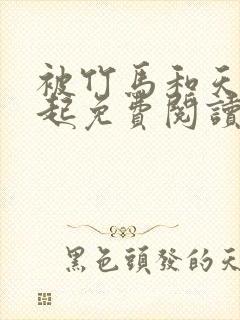 被竹馬和天
起免費閱讀
黑色頭發的天